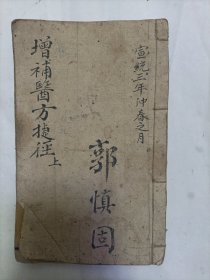 宣統三年仲春之月
郭慎固
增補醫方捷徑上